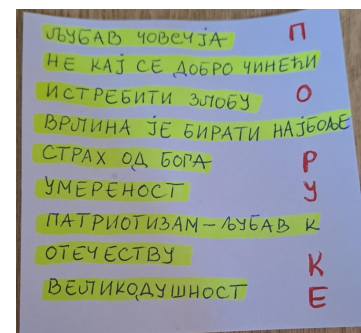 ЉУБАВ ЧОВЕЧЈА П
НЕ КАЈ СЕ ДОБРО ЧИНЕЋИ
ИСТРЕБИТИ ЗЛОБУ О
ВРЛИНА ЈЕ БИРАТИ НАЈБОЉЕ
СТРАХ ОД БОГА Р
УМЕРЕНОСТ У
ПАТРИОТИЗАМ – ЉУБАВ К
ОТЕЧЕСТВУ К
ВЕЛИКОДУШНОСТ Е